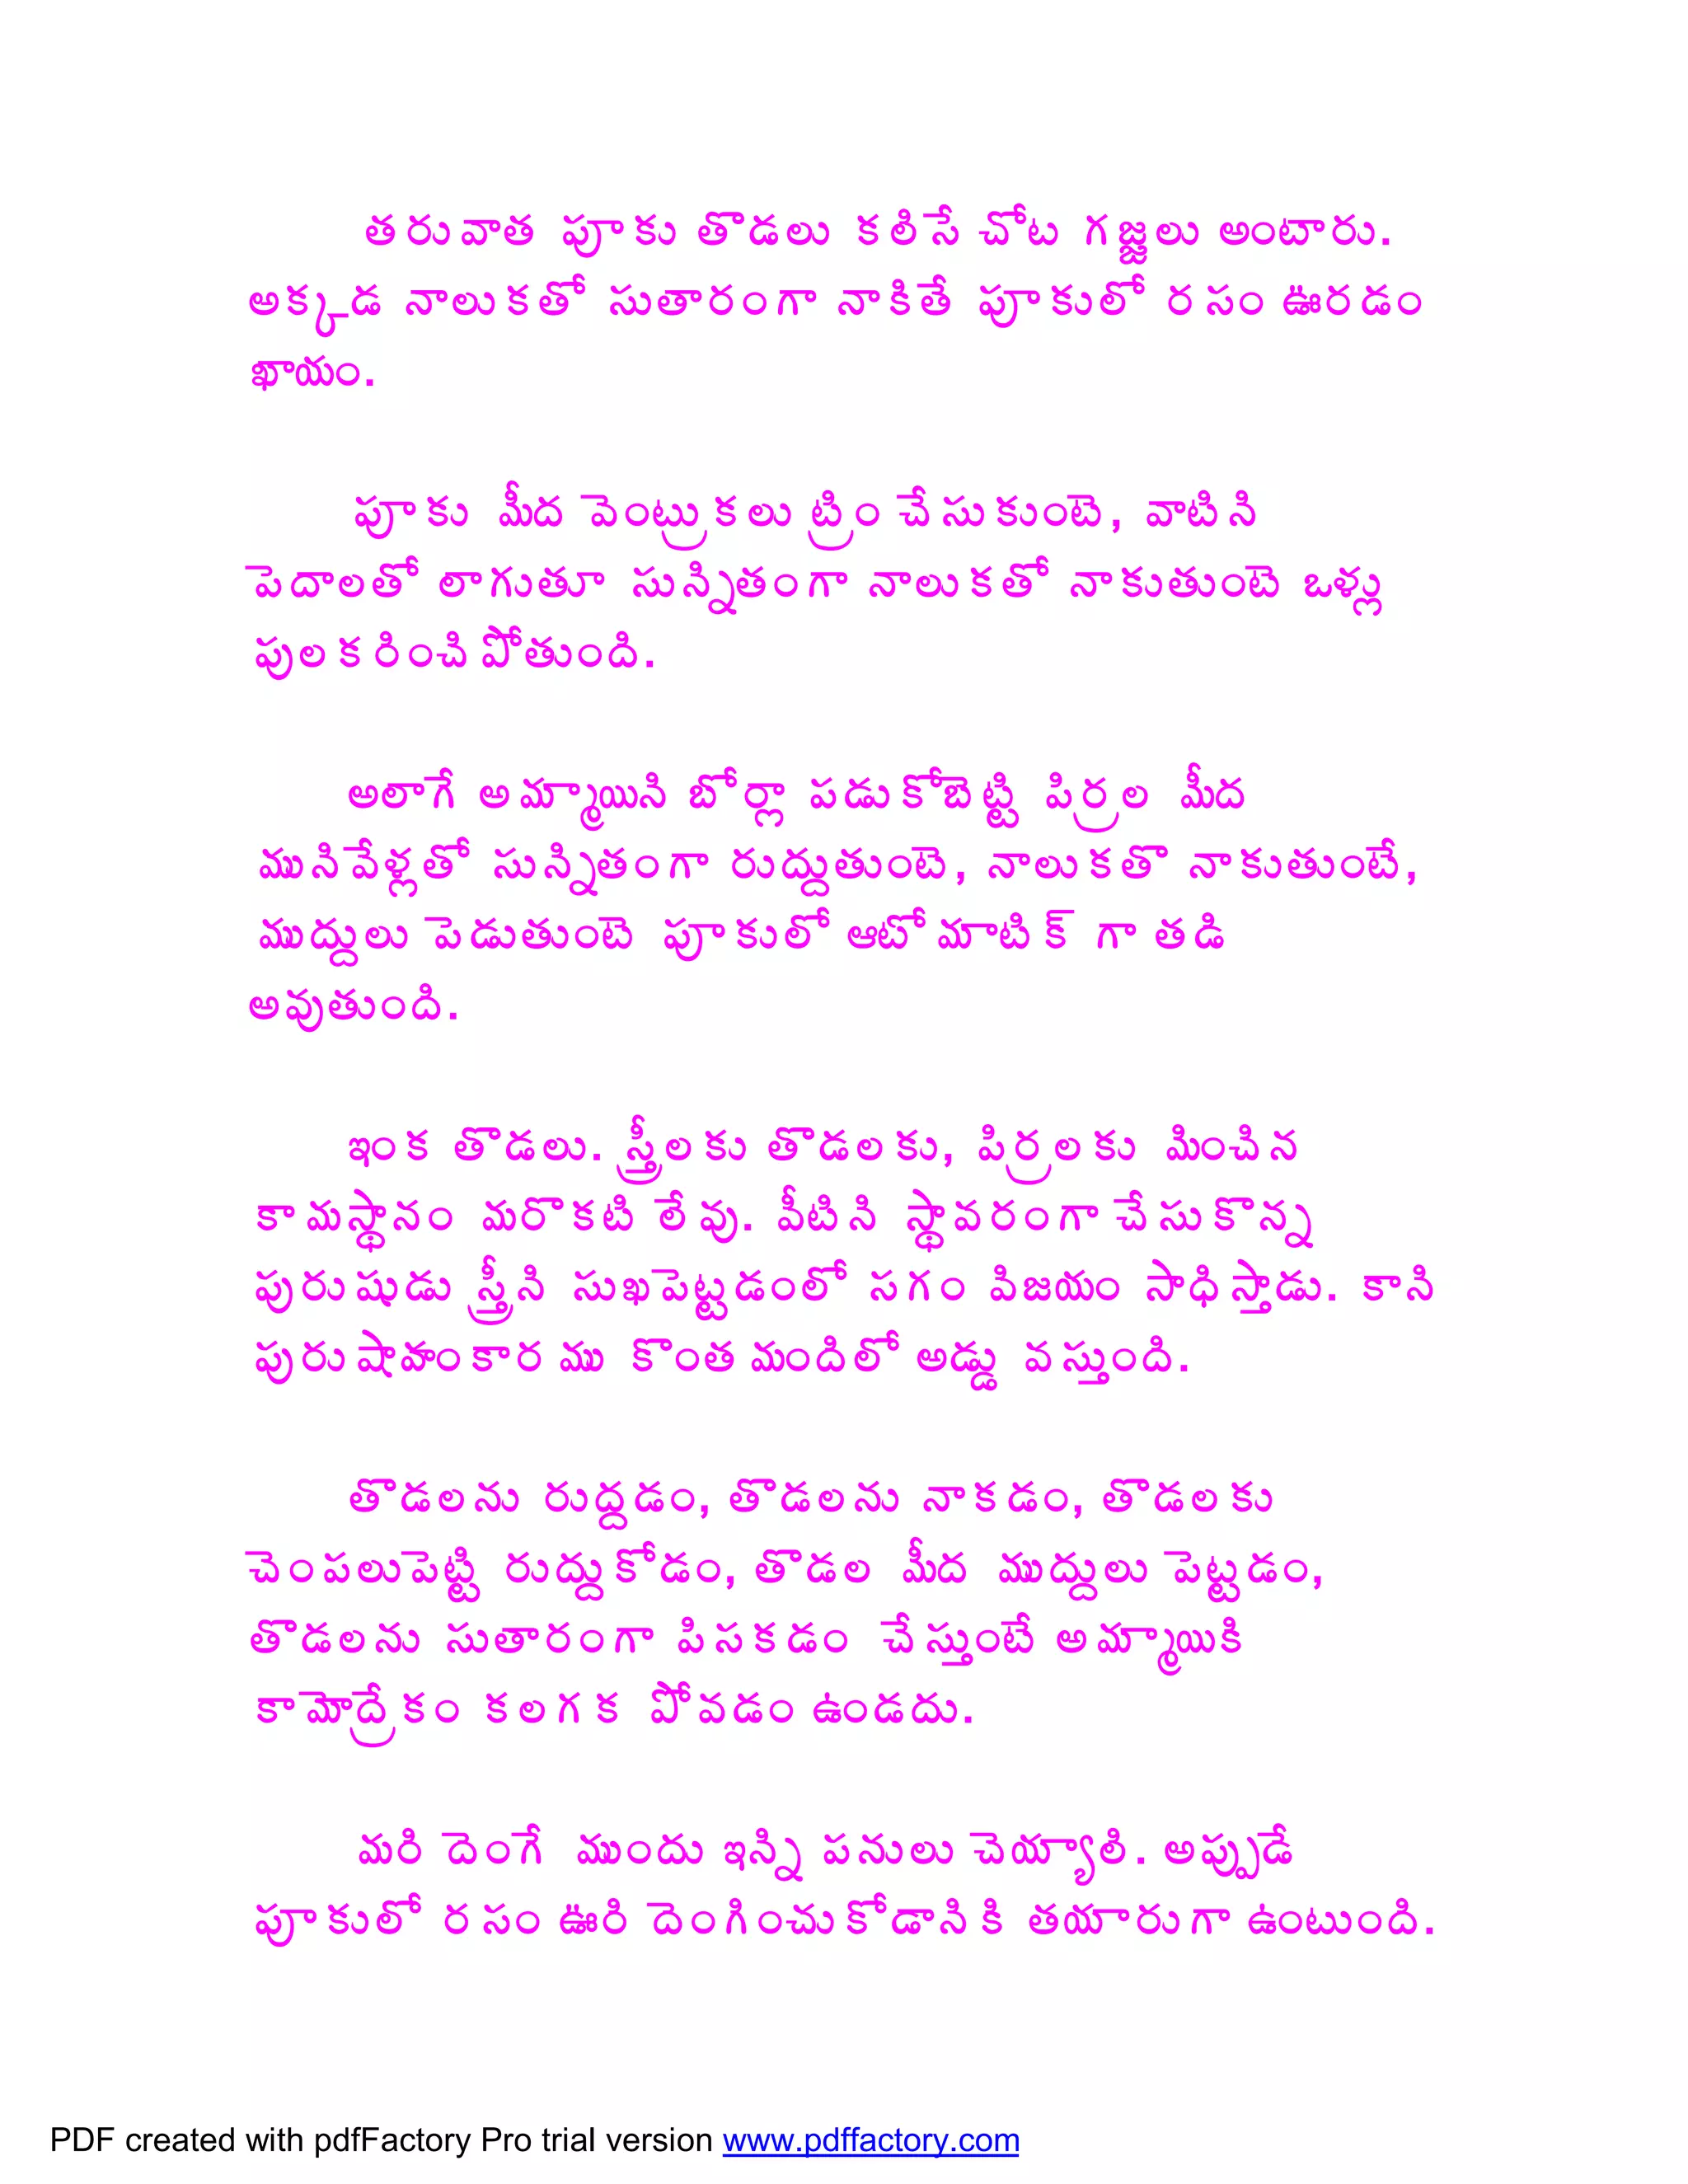 తరువాత పూకు తొడలు కలిసే చోట గజ్జలు అంటారు.
అక్కడ నాలుకతో సుతారంగా నాకితే పూకులో రసం ఊరడం
ఖాయం.
పూకు మీద వెంట్రుకలు ట్రిం చేసుకుంటె, వాటిని
పెదాలతో లాగుతూ సున్నితంగా నాలుకతో నాకుతుంటె ఒళ్లు
పులకరించిపోతుంది.
అలాగే అమ్మాయిని బోర్లా పడుకోబెట్టి పిర్రల మీద
మునివేళ్లతో సున్నితంగా రుద్దుతుంటె, నాలుకతొ నాకుతుంటే,
ముద్దులు పెడుతుంటె పూకులో ఆటోమాటిక్ గా తడి
అవుతుంది.
ఇంక తొడలు. స్త్రీలకు తొడలకు, పిర్రలకు మించిన
కామస్థానం మరొకటి లేవు. వీటిని స్థావరంగా చేసుకొన్న
పురుషుడు స్త్రీని సుఖపెట్టడంలో సగం విజయం సాధిస్తాడు. కాని
పురుషాహంకారము కొంతమందిలో అడ్డు వస్తుంది.
తొడలను రుద్దడం, తొడలను నాకడం, తొడలకు
చెంపలుపెట్టి రుద్దుకోడం, తొడల మీద ముద్దులు పెట్టడం,
తొడలను సుతారంగా పిసకడం చేస్తుంటే అమ్మాయికి
కామోద్రేకం కలగక పోవడం ఉండదు.
మరి దెంగే ముందు ఇన్ని పనులు చెయ్యాలి. అప్పుడే
పూకులో రసం ఊరి దెంగించుకోడానికి తయారుగా ఉంటుంది.
PDF created with pdfFactory Pro trial version www.pdffactory.com